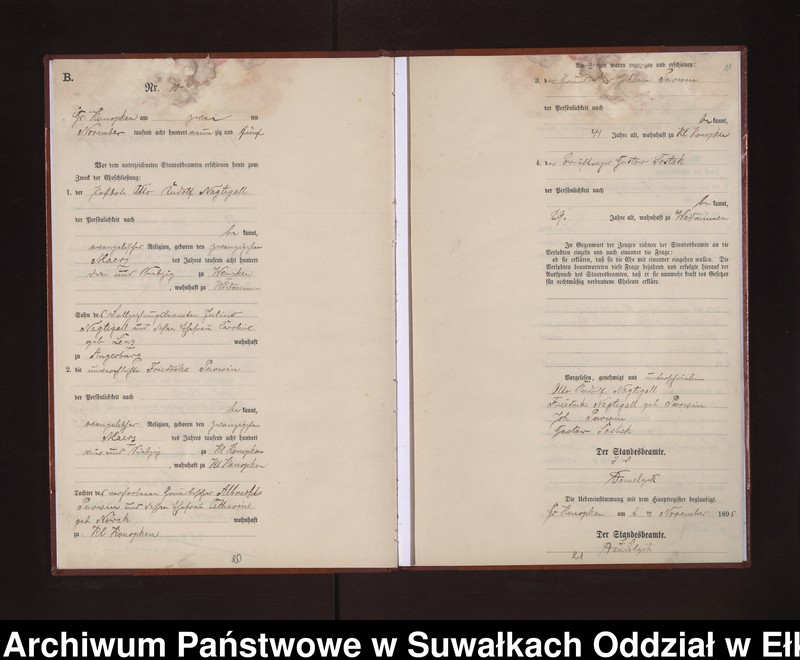 B.
Nr.
Gr. Konopken am zwei ten
November tausend acht hundert neunzig und fünf
Vor dem unterzeichneten Standesbeamten erschienen heute zum
Zweck der Eheschließung:
1. der Otto Rudolf Nagtigall
der Persönlichkeit nach
be kannt,
evangelischer Religion, geboren den zwanzigsten
Maerz des Jahres tausend acht hundert
drei und siebzig zu
, wohnhaft zu
Sohn des Julius
Nagtigall und dessen Ehefrau Caroline
geb. Lenz wohnhaft
zu Angerburg
2. die unverehelichte Friederike Purwin
der Persönlichkeit nach
be kannt,
evangelischer Religion, geboren den zwanzigsten
Maerz des Jahres tausend acht hundert
und siebzig zu Kl Konopken
, wohnhaft zu Kl Konopken
Tochter des verstorbenen Albrecht
Purwin und dessen Ehefrau Catharine
geb. Nowak wohnhaft
zu Kl Konopken
Als Zeugen waren zugezogen und erschienen:
3. der Johann Purwin
der Persönlichkeit nach
be kannt,
41 Jahre alt, wohnhaft zu Kl Konopken
4. der Gustav
der Persönlichkeit nach
be kannt,
29. Jahre alt, wohnhaft zu
In Gegenwart der Zeugen richtete der Standesbeamte an die
Verlobten einzeln und nach einander die Frage:
ob sie erklären, daß sie die Ehe mit einander eingehen wollen. Die
Verlobten beantworteten diese Frage bejahend und erfolgte hierauf der
Ausspruch des Standesbeamten, daß er sie nunmehr kraft des Gesetzes
für rechtmäßig verbundene Eheleute erkläre.
Vorgelesen, genehmigt und unterschrieben
Otto Rudolf Nagtigall
Friederike Nagtigall geb Purwin
Joh Purwin
Gustav
Der Standesbeamte.
Die Uebereinstimmung mit dem Hauptregister beglaubigt.
Gr Konopken am 2 ten November 1895
Der Standesbeamte.
Archiwum Państwowe w Suwałkach Oddział w Ełk